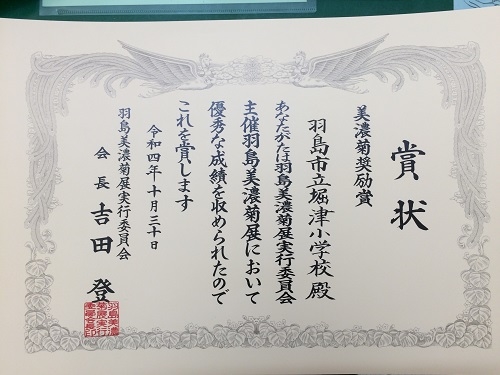 賞状
美濃菊奨励賞
羽島市立堀津小学校 殿
あなたがたは羽島美濃菊展実行委員会
主催羽島美濃菊展において
優秀な成績を収められたので
これを賞します
令和四年十月三十日
羽島美濃菊展実行委員会
会長 吉田 登